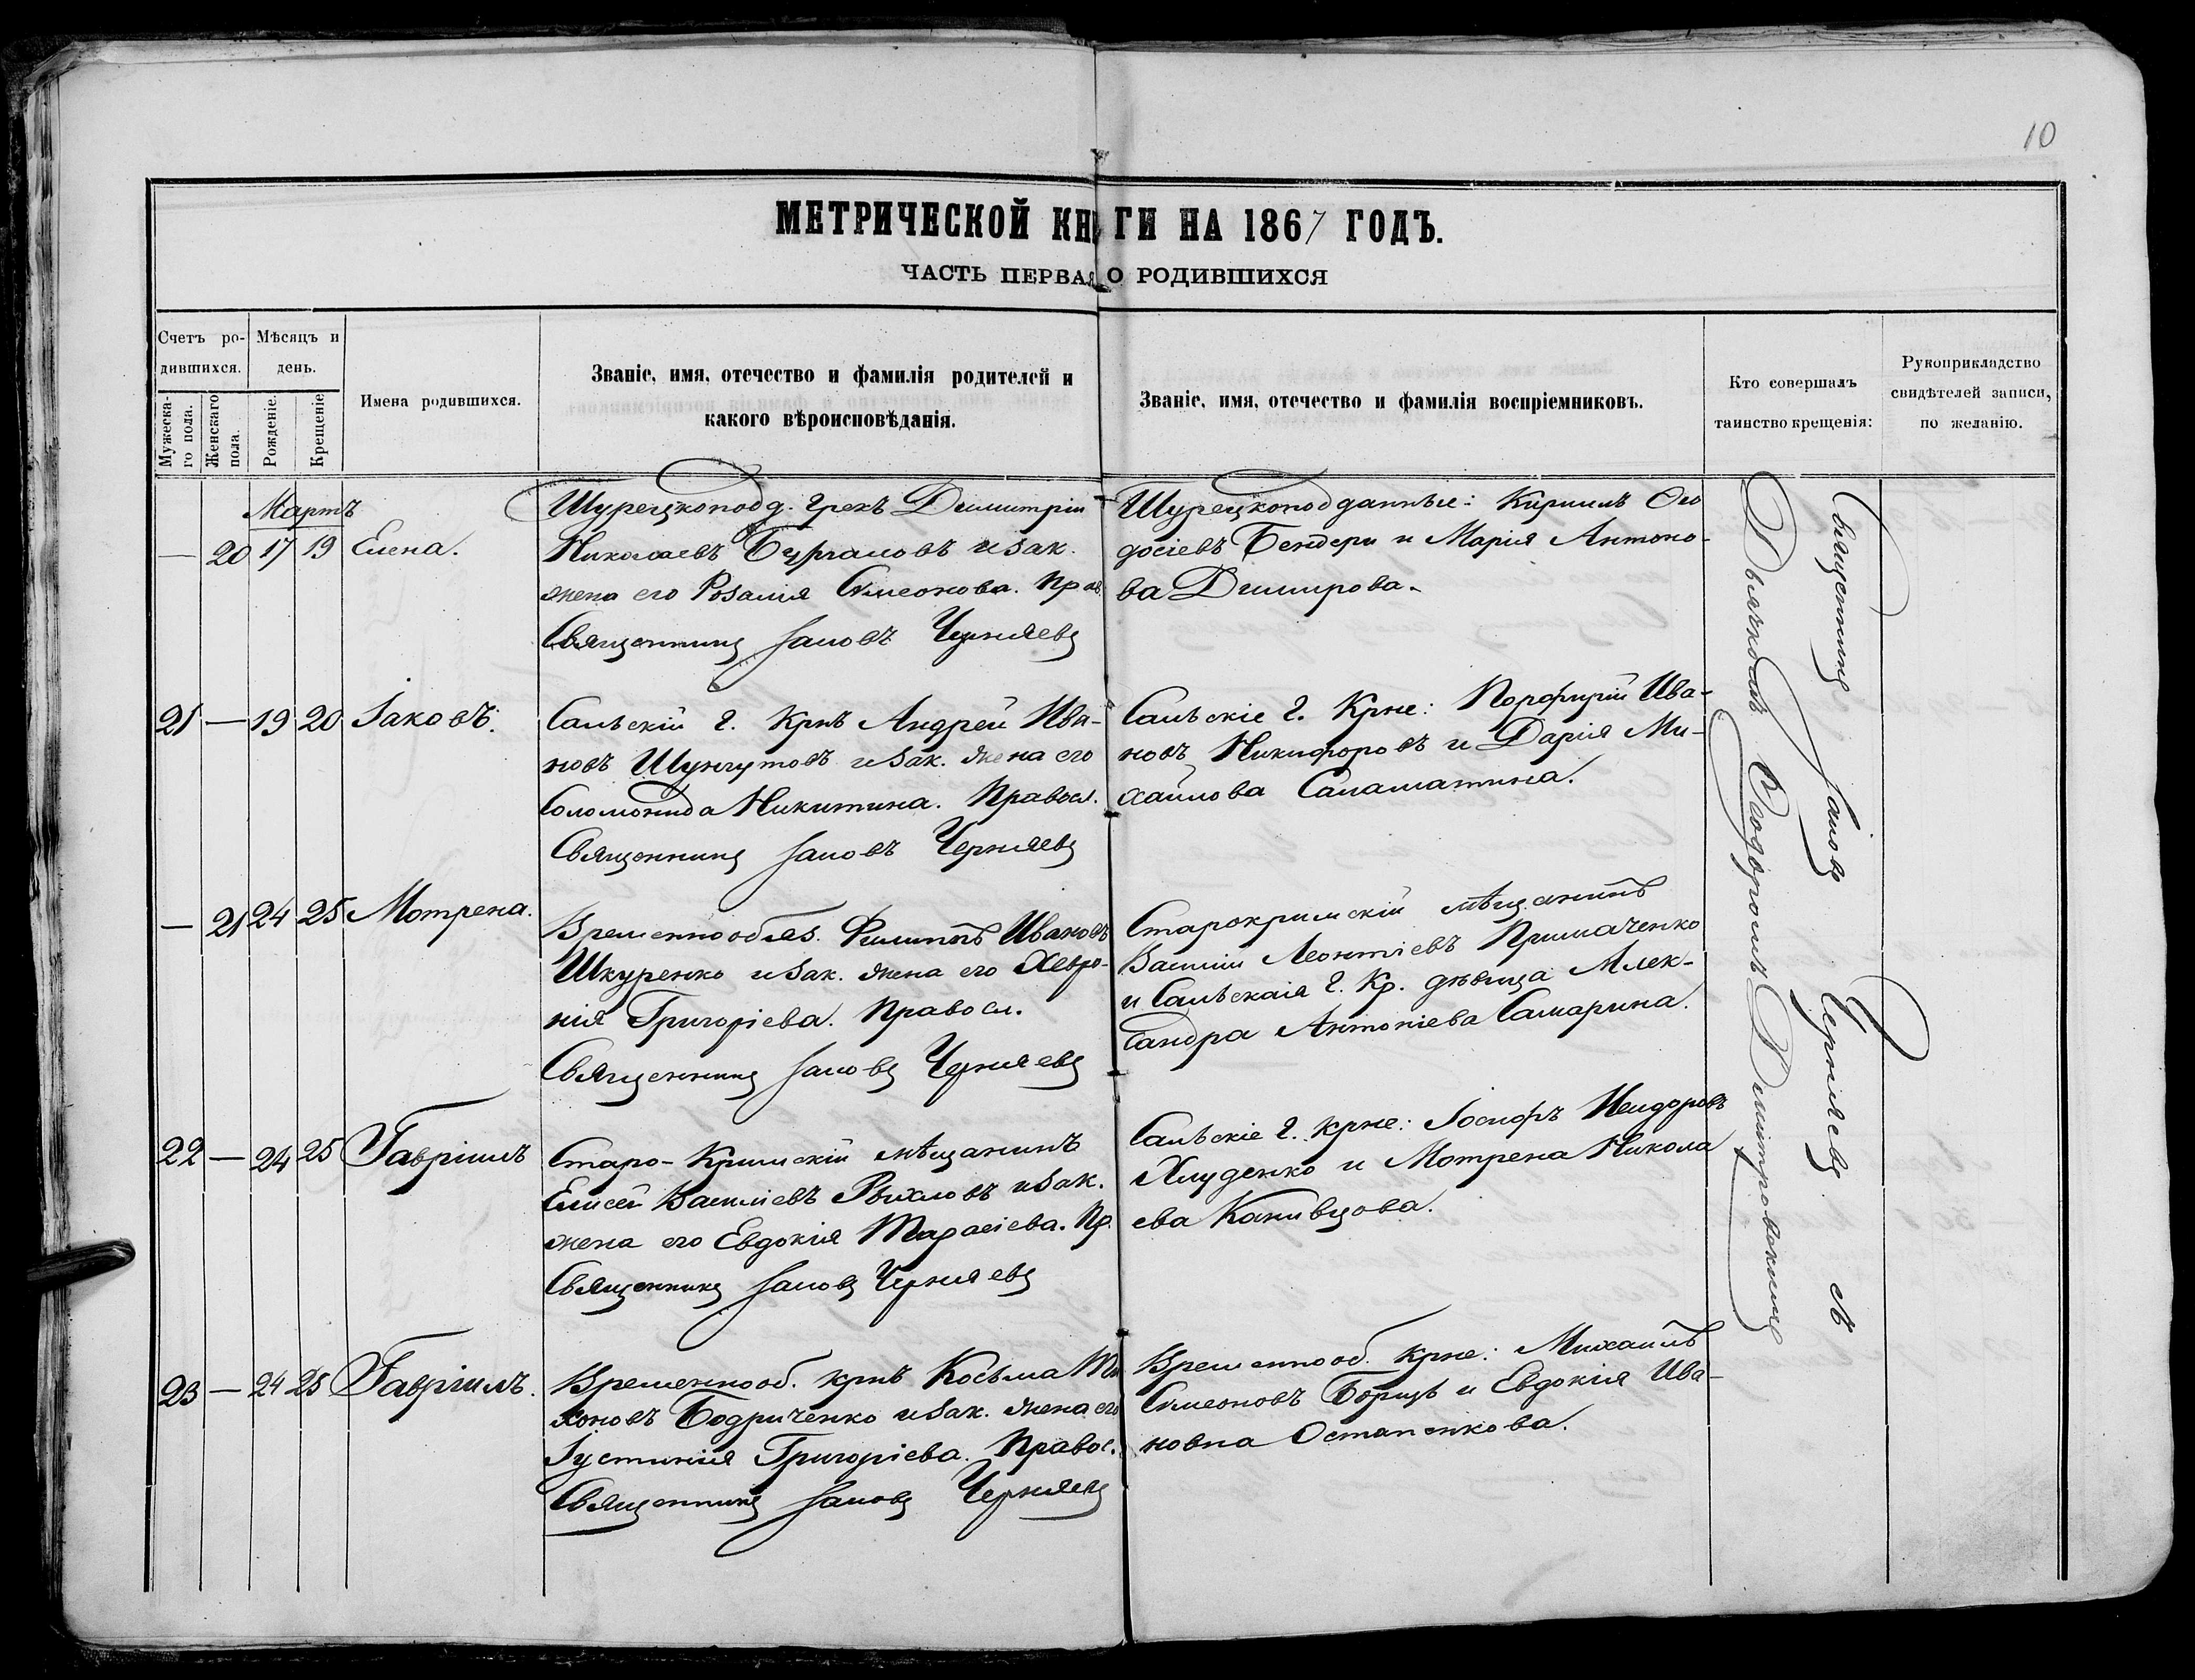 10
МЕТРИЧЕСКОЙ КНИГИ НА 1867 ГОДЪ.
ЧАСТЬ ПЕРВАЯ О РОДИВШИХСЯ
Счетъ родившихся.
Мужескаго пола.
Женскаго пола.
Мѣсяцъ и день.
Рожденіе.
Крещеніе
Имена родившихся.
Званіе, имя, отечество и фамилія родителей и
какого вѣроисповѣданія.
Званіе, имя, отечество и фамилія воспріемниковъ.
Кто совершалъ
таинство крещенія:
Рукоприкладство
свидѣтелей записи,
по желанію.
Мартъ
— 20 17 19 Елена.
Турецкоподд. Грекъ Димитрій
Николаевъ и зак.
жена его Розалія Симеонова. Прав.
Священникъ Іаковъ Черняевъ
Турецкоподданные: Кириллъ Ѳео
досіевъ Бендери и Марія Антоно-
ва
21 — 19 20 Іаковъ.
г. Крнъ Андрей Ива-
новъ и зак. жена его
Соломонида Никитина. Правосл.
Священникъ Іаковъ Черняевъ
г. Крне: Порфирій Ива-
новъ Никифоровъ и Дарія Ми-
хайлова Саламатина.
— 21 24 25 Мотрена.
Временнообяз. Филиппъ Ивановъ
Шкуренко и зак. жена его Хевро-
нія Григоріева. Правосл.
Священникъ Іаковъ Черняевъ
Старокримскій мѣщанинъ
Василій Леонтіевъ Примаченко
и г. Кр. дѣвица Алек-
сандра Антоніева Самарина.
22 — 24 25 Гавріилъ
Старо-Кримскій мѣщанинъ
Елисей Василіевъ Рыхловъ и зак.
жена его Евдокія Тарасіева. Пр.
Священникъ Іаковъ Черняевъ
г. крне: Іосифъ Исидоровъ
Хлуденко и Мотрена Никола
ева Канивцова.
23 — 24 25 Гавріилъ.
Временнооб. крнъ Косьма Ти
хоновъ Бодриченко и зак. жена его
Іустинія Григоріева. Правос.
Священникъ Іаковъ Черняевъ
Временнооб. крне: Михаилъ
Симеоновъ Борицъ и Евдокія Ива-
новна Остапенкова.
Священникъ Іаковъ Черняевъ
съ
Дьячкомъ Ѳеодоромъ Димитровскимъ